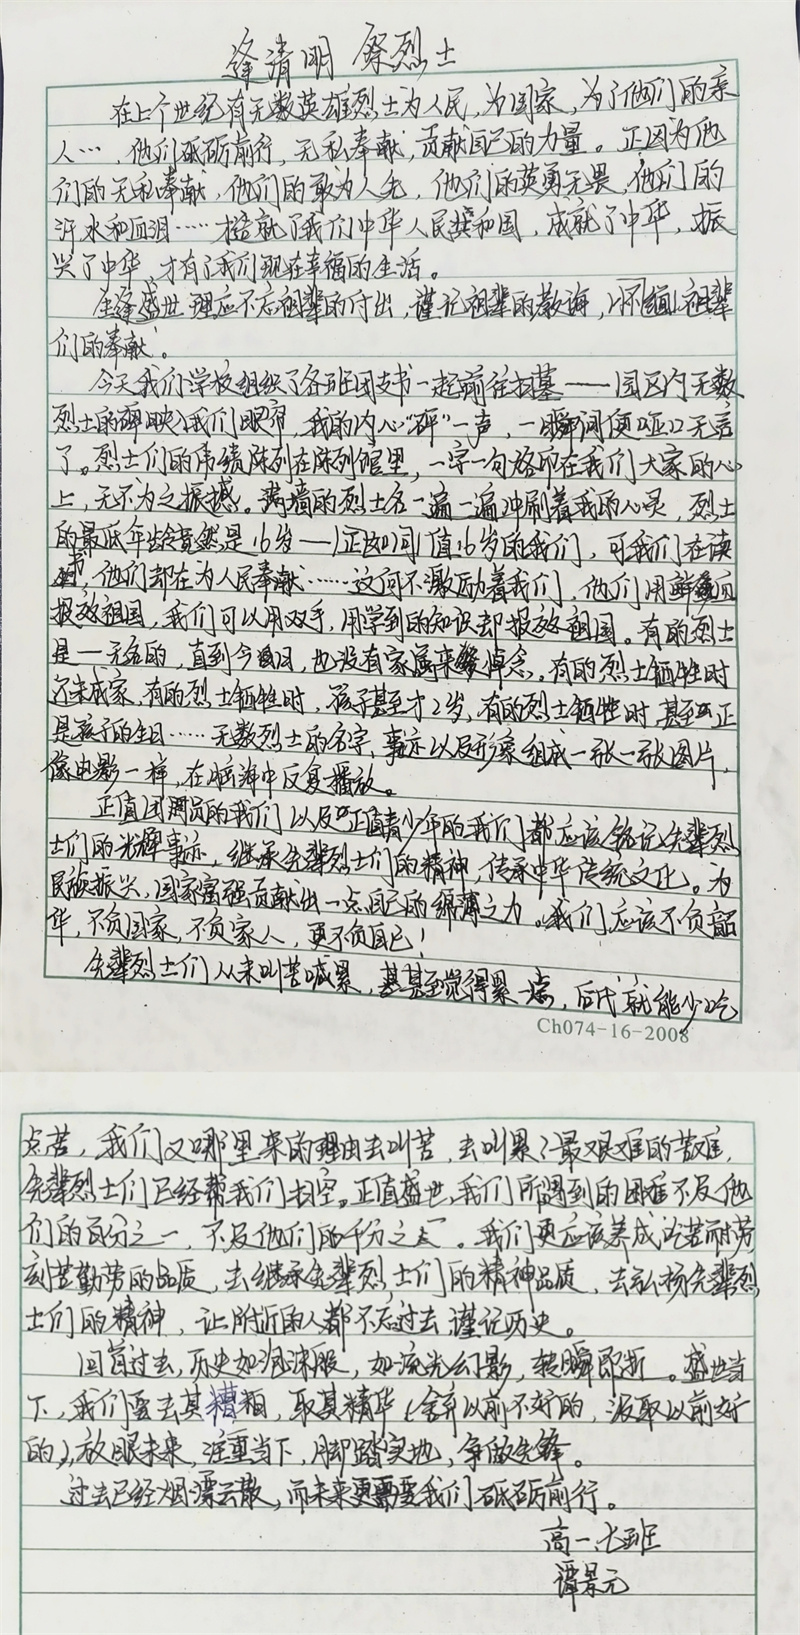 逢清明 祭烈士
在上个世纪有无数英雄烈士为人民，为国家，为了他们的亲
人…，他们砥砺前行，无私奉献，贡献自己的力量。正因为他
们的无私奉献，他们的敢为人先，他们的英勇无畏，他们的
汗水和血泪……才造就了我们中华人民共和国，成就了中华，振
兴了中华，才有了我们现在幸福的生活。
生逢盛世理应不忘祖辈的付出，谨记祖辈的教诲，不缅祖辈
们的奉献。
今天我们学校组织了各班团支书一起前往扫墓——园区内无数
烈士的碑映入我们眼帘，我的内心“砰”一声，一瞬间便哑口无言
了。烈士们的伟绩陈列在陈列馆里，一字一句烙印在我们大家的心
上，无不为之振撼。满墙的烈士名一遍一遍冲刷着我的心灵，烈士
的最低年龄竟然是16岁——正如同值16岁的我们，可我们在读
书，他们却在为人民奉献……这何不激励着我们，他们用鲜血
报效祖国，我们可以用双手，用学到的知识却报效祖国。有的烈士
是一无名的，直到今日，也没有家属来悼念。有的烈士牺牲时
还未成家，有的烈士牺牲时，孩子甚至才2岁，有的烈士牺牲时，甚至正
是孩子的生日……无数烈士的名字，事迹以及形象组成一张一张图片，
像电影一样，在脑海中反复播放。
正值团员的我们以及正值青少年的我们都应该铭记先辈烈
士们的光辉事迹，继承先辈烈士们的精神，传承中华传统文化。为
民族振兴，国家富强贡献出一点自己的绵薄之力。我们应该不负韶
华，不负国家，不负家人，更不负自己！
先辈烈士们从未叫苦喊累，甚至觉得累一点，后代就能少吃
Ch074-16-2008
点苦，我们又哪里来的理由去叫苦，去叫累？最艰难的苦难，
先辈烈士们已经帮我们扫空。正值盛世，我们所遇到的困难不及他
们的百分之一，不及他们的千分之一。我们更应该养成吃苦耐劳
刻苦勤劳的品质，去继承先辈烈士们的精神品质，去弘扬先辈烈
士们的精神，让附近的人都不忘过去谨记历史。
回首过去，历史如泡沫般，如流光幻影，转瞬即逝。盛世当
下，我们要去其糟粕，取其精华（舍弃以前不好的，汲取以前好
的），放眼未来，注重当下，脚踏实地，争做先锋。
过去已经烟漂云散，而未来更需要我们砥砺前行。
高一七班
谭景元